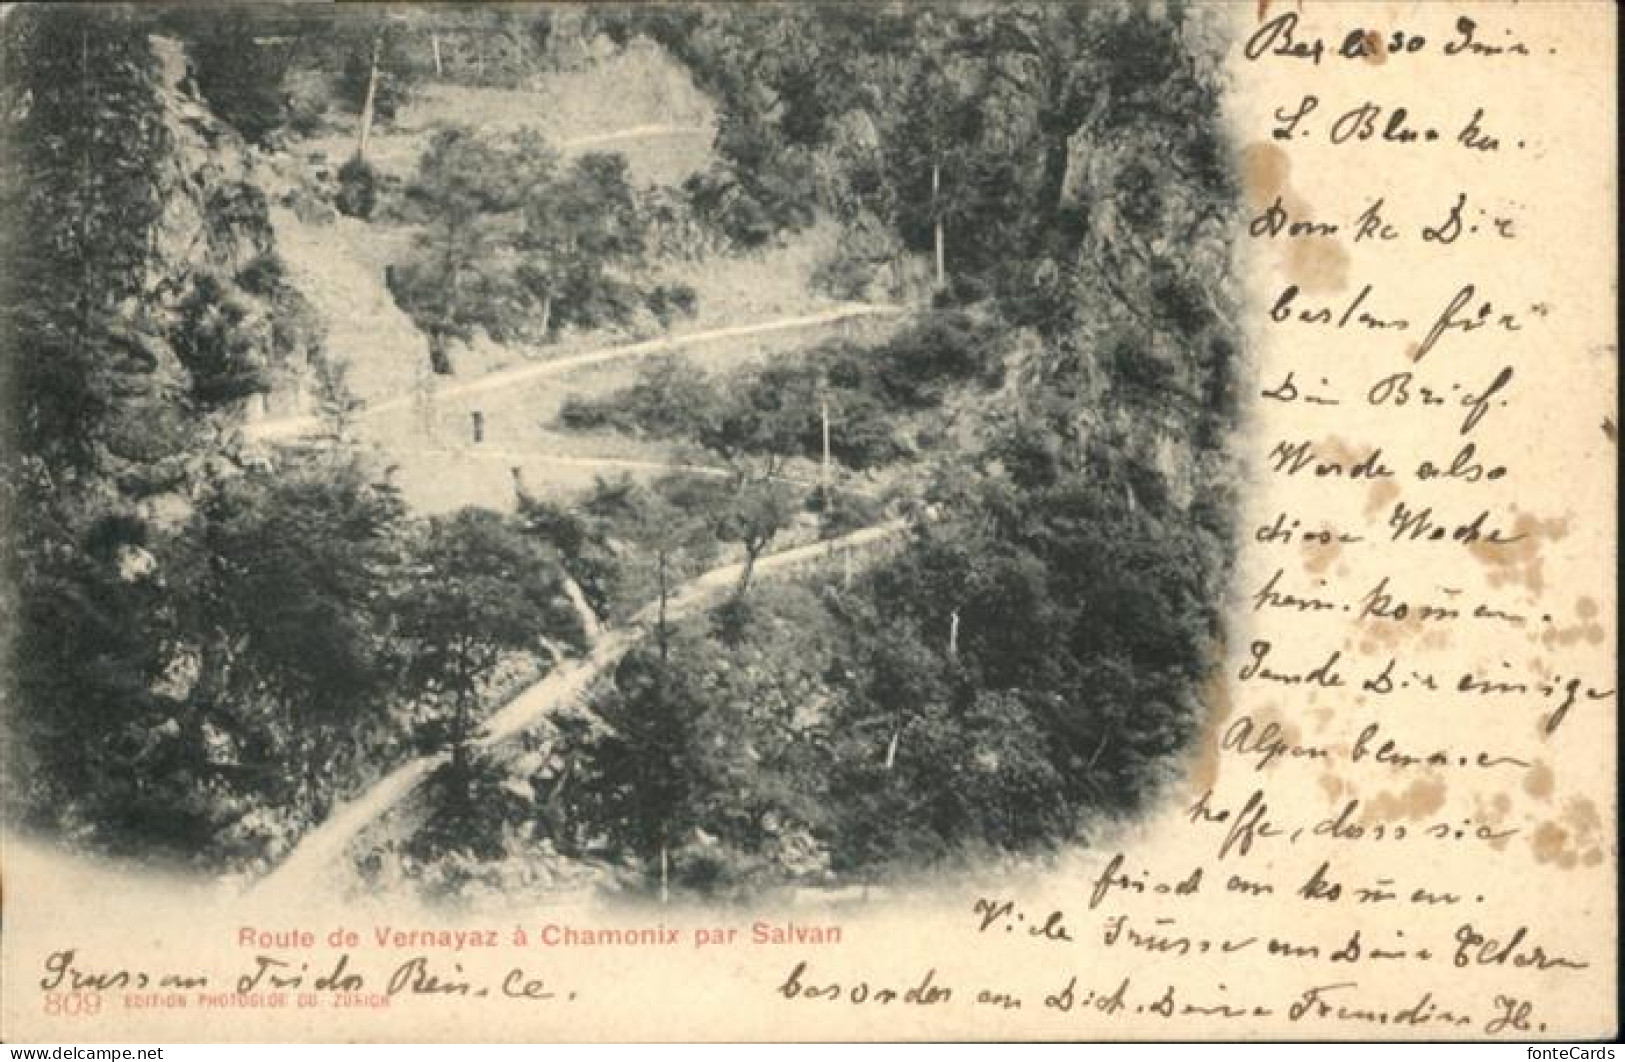 Bex le 30 Juin.
L. Blanka.
Danke Dir
bestens für
Din Brief.
Werde also
diese Woche
heim. kom̄en.
Sende Dir einige
Alpenblumen
hoffe, dass sie
frisch ankom̄en.
Viele Grüsse an Deine Eltern
besonders an Dich. Deine Freundin
Route de Vernayaz à Chamonix par Salvan
Gruss an
809 EDITION PHOTOGLOB CO. ZÜRICH
delcampe.net
fonteCards